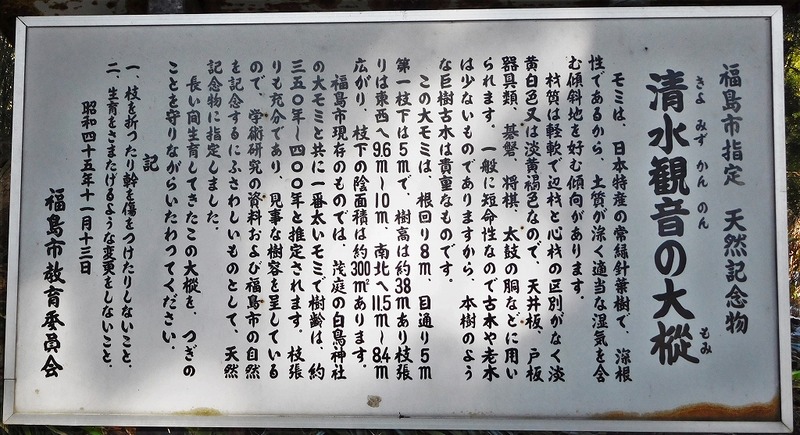 福島市指定 天然記念物
清水観音の大樅
きよ みず かん のん もみ
モミは、日本特産の常緑針葉樹で、深根
性であるから、土質が深く適当な湿気を含
む傾斜地を好む傾向があります。
材質は軽軟で辺材と心材の区別がなく淡
黄白色又は淡黄褐色なので、天井板、戸板
器具類、碁盤、将棋、太鼓の胴などに用い
られます。一般に短命性なので古木や老木
は少ないものでありますから、本樹のよう
な巨樹古木は貴重なものです。
この大モミは、根回り8m、目通り5m
第一枝下は5mで、樹高は約38mあり枝張
りは東西へ9.6m〜10m、南北へ11.5m〜8.4m
広がり、枝下の陰面積は約300m²あります。
福島市現存のものでは、茂庭の白鳥神社
の大モミと共に一番太いモミで樹齢は、約
三五〇年〜四〇〇年と推定されます。枝張
りも充分であり、見事な樹容を呈している
ので、学術研究の資料および福島市の自然
を記念するにふさわしいものとして、天然
記念物に指定しました。
長い間生育してきたこの大樅を、つぎの
ことを守りながらいたわってください。
記
一、枝を折ったり幹を傷をつけたりしないこと。
二、生育をさまたげるような変更をしないこと。
昭和四十五年十一月十三日
福島市教育委員会